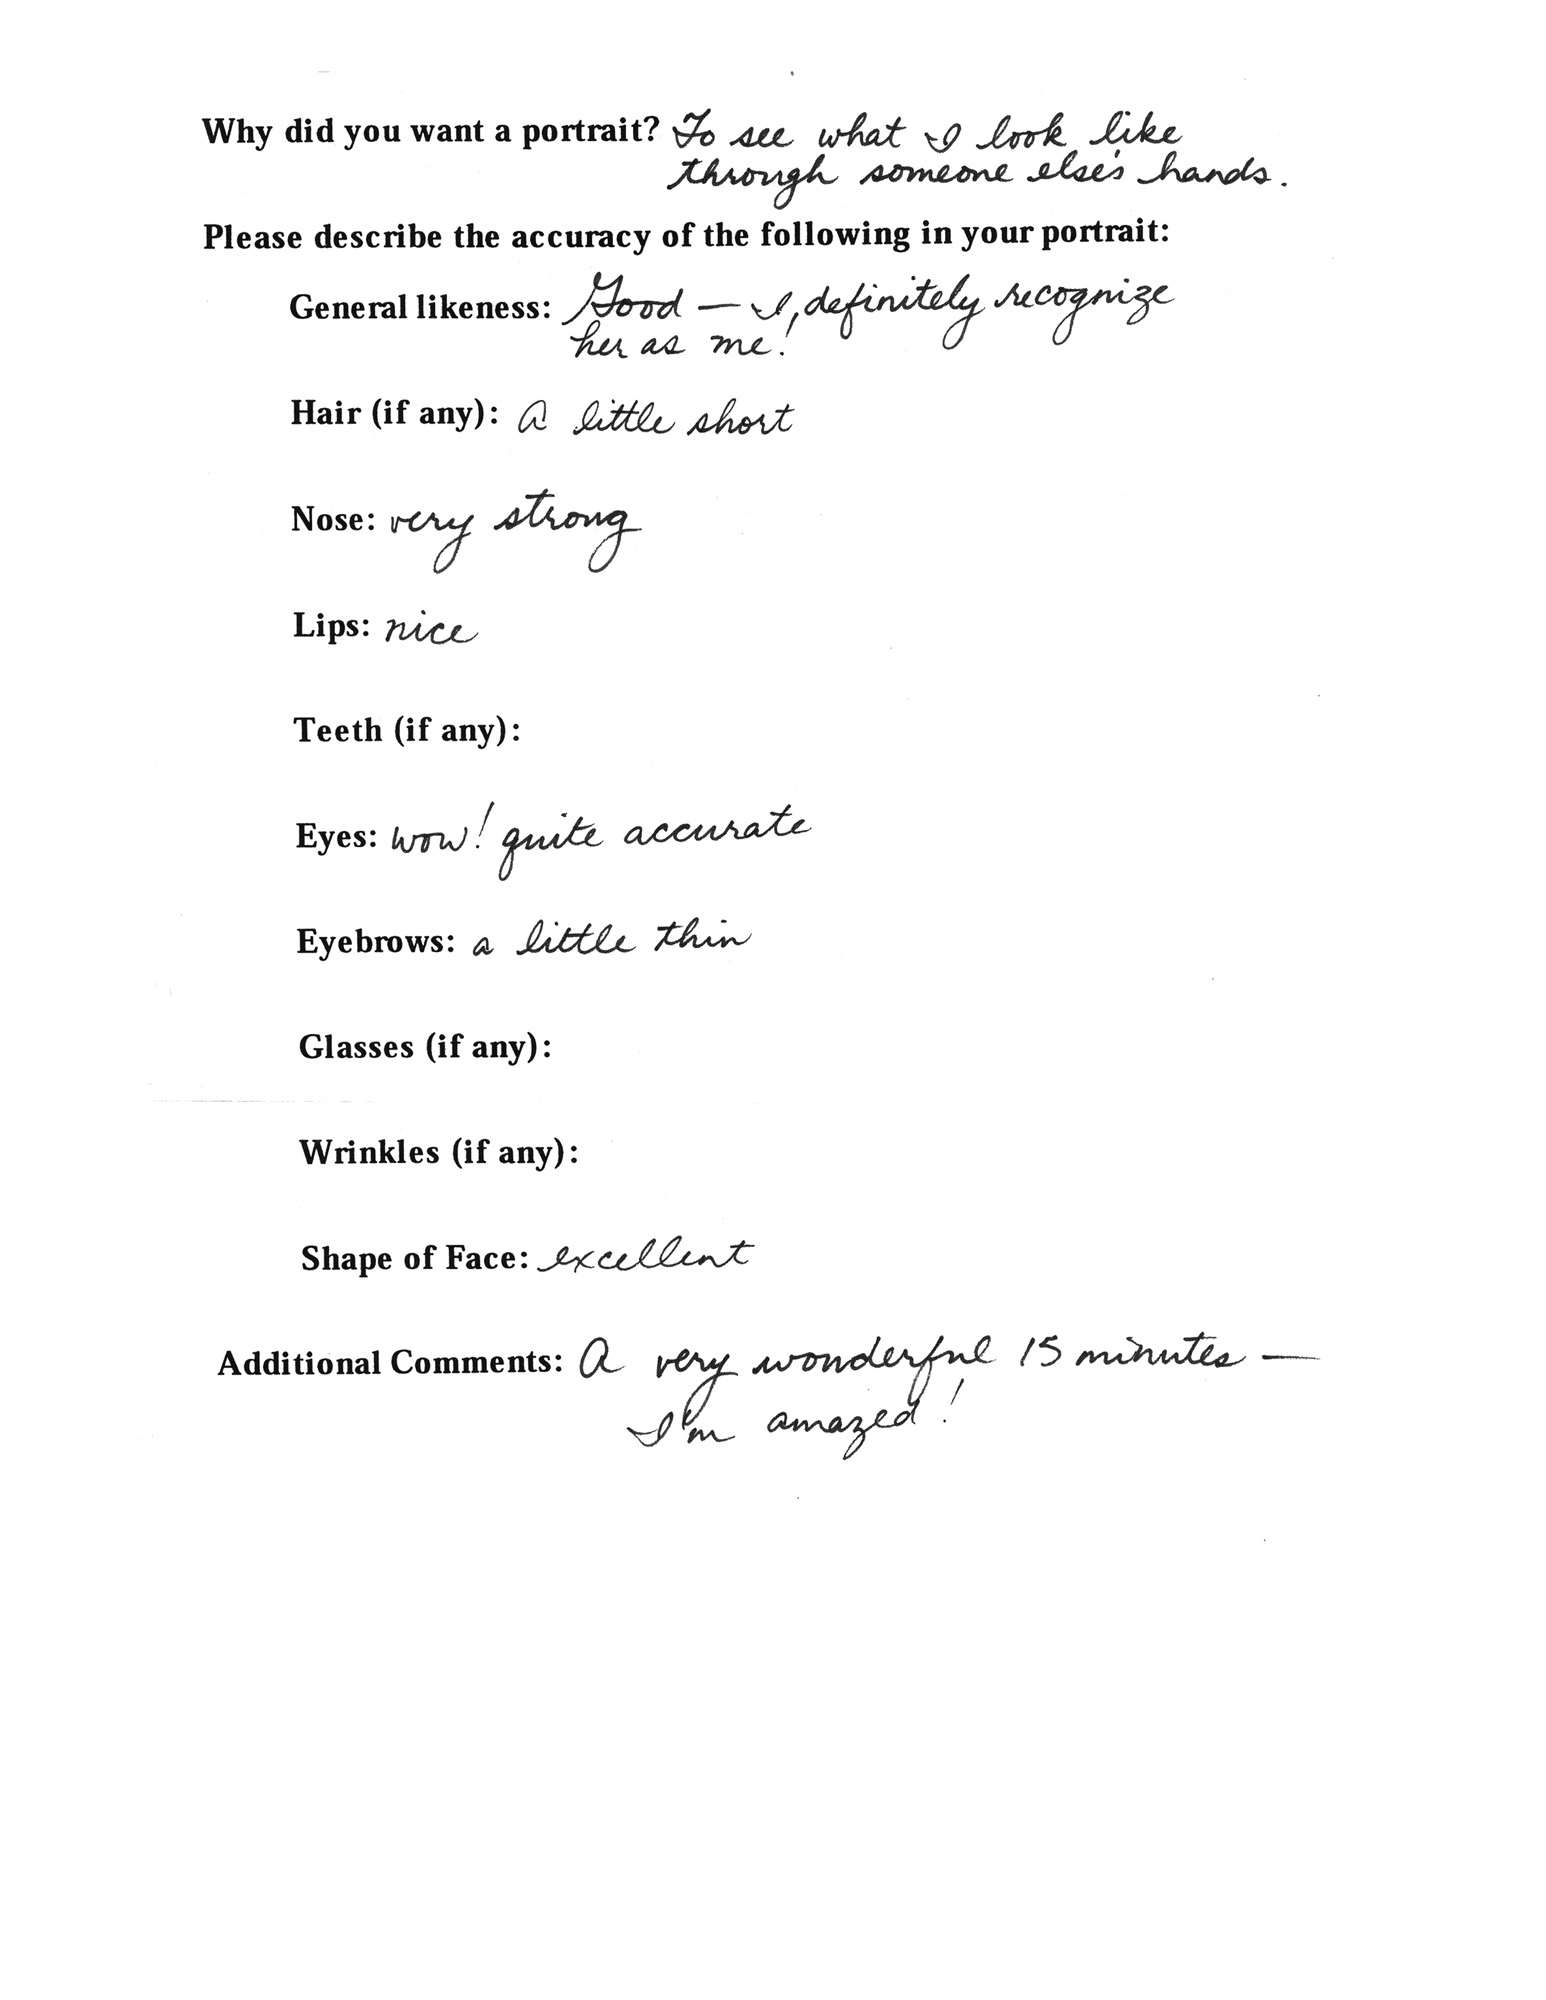 Why did you want a portrait? To see what I look like
through someone else's hands.
Please describe the accuracy of the following in your portrait:
General likeness: Good — I, definitely recognize
her as me!
Hair (if any): A little short
Nose: very strong
Lips: nice
Teeth (if any):
Eyes: wow! quite accurate
Eyebrows: a little thin
Glasses (if any):
Wrinkles (if any):
Shape of Face: excellent
Additional Comments: A very wonderful 15 minutes —
I'm amazed!